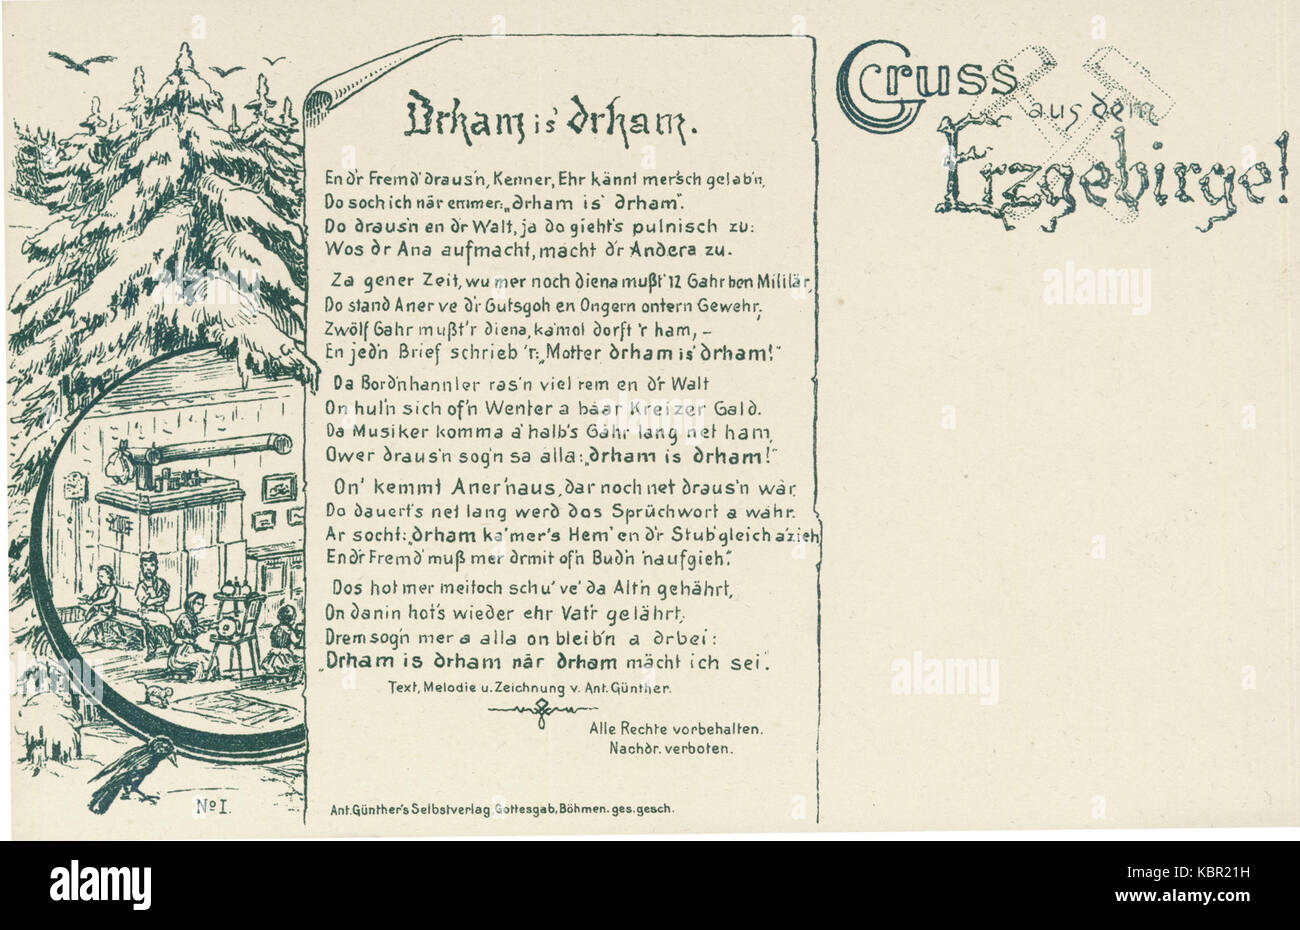 Drham is' drham.
En d'r Fremd' draus'n, Kenner, Ehr kännt mersch gelab'n,
Do soch ich när emmer: „drham is' drham".
Do draus'n en d'r Walt, ja do gieht's pulnisch zu:
Wos dr Ana aufmacht, macht d'r Andera zu.
Za gener Zeit, wu mer noch diena mußt' 12 Gahr ben Militär,
Do stand Aner ve d'r Gutsgoh en Ongern ontern Gewehr,
Zwölf Gahr mußt'r diena, ka'mol dorft 'r ham, –
En jed'n Brief schrieb 'r: „Motter drham is' drham!"
Da Bord'nhannler ras'n viel rem en d'r Walt
On hul'n sich of'n Wenter a baar Kreizer Gald.
Da Musiker komma a' halb's Gahr lang net ham,
Ower draus'n sog'n sa alla: „drham is drham!"
On' kemmt Aner 'naus, dar noch net draus'n wär,
Do dauert's net lang werd dos Sprüchwort a wahr.
Ar socht: „drham ka' mer's Hem' en d'r Stub' gleich a'zieh
En d'r Fremd' muß mer drmit of'n Bud'n 'naufgieh".
Dos hot mer meitoch schu' ve' da Alt'n gehährt,
On danin hot's wieder ehr Vat'r gelährt,
Drem sog'n mer a alla on bleib'n a drbei:
„Drham is drham när drham mächt ich sei".
Text, Melodie u. Zeichnung v. Ant. Günther.
Alle Rechte vorbehalten.
Nachdr. verboten.
Ant. Günther's Selbstverlag, Gottesgab, Böhmen. ges. gesch.
No I.
Gruss
aus dem
Erzgebirge!
alamy
alamy
Image ID: KBR21H
www.alamy.com